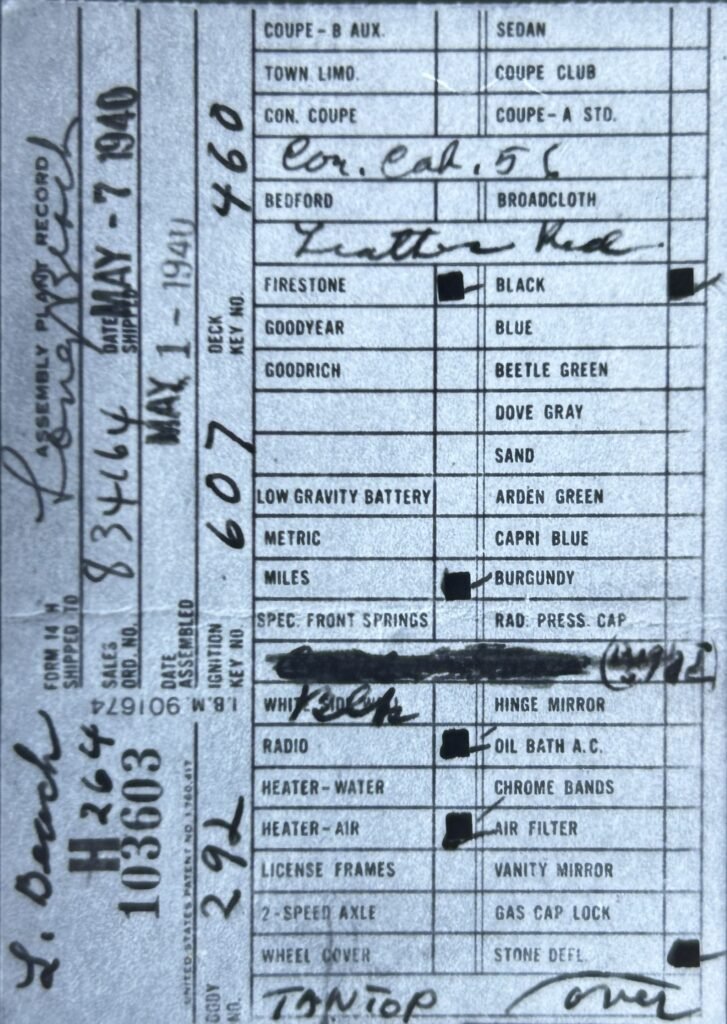 FORM 14 H ASSEMBLY PLANT RECORD
SHIPPED TO Long Beach
SALES ORD. NO. 834164 DATE SHIPPED MAY - 7 1940
DATE ASSEMBLED MAY 1 - 1940
IGNITION KEY NO. 607 DECK KEY NO. 460
L. Beach
H 264
103603
I.B.M. 901674
UNITED STATES PATENT NO. 1,780,417
BODY NO. 292
COUPE - B AUX. SEDAN
TOWN LIMO. COUPE CLUB
CON. COUPE COUPE - A STD.
Con. Cab. 56
BEDFORD BROADCLOTH
Leather Red
FIRESTONE BLACK
GOODYEAR BLUE
GOODRICH BEETLE GREEN
DOVE GRAY
SAND
LOW GRAVITY BATTERY ARDEN GREEN
METRIC CAPRI BLUE
MILES BURGUNDY
SPEC. FRONT SPRINGS RAD. PRESS. CAP
HINGE MIRROR
RADIO OIL BATH A.C.
HEATER - WATER CHROME BANDS
HEATER - AIR AIR FILTER
LICENSE FRAMES VANITY MIRROR
2 - SPEED AXLE GAS CAP LOCK
WHEEL COVER STONE DEFL.
TAN TOP over